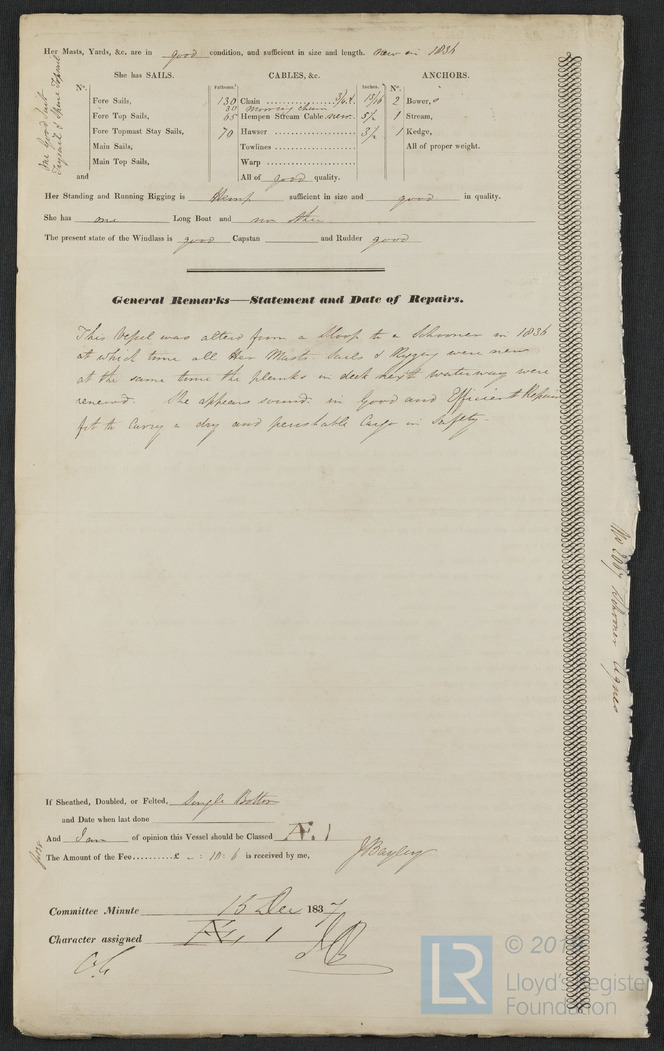 Her Masts, Yards, &c. are in good condition, and sufficient in size and length. new in 1836
She has SAILS. CABLES, &c. ANCHORS.
No. Fathoms. Inches. No.
One Good Suit
Topsail & Spare Topsail
Fore Sails, 130 Chain .................. 3/4 & 13/16 2 Bower,s
30 Mooring chain
Fore Top Sails, 65 Hempen Stream Cable new 5½ 1 Stream,
Fore Topmast Stay Sails, 70 Hawser .................. 3½ 1 Kedge,
Main Sails, Towlines .................. All of proper weight.
Main Top Sails, Warp ..................
and All of good quality.
Her Standing and Running Rigging is Hemp sufficient in size and good in quality.
She has one Long Boat and no other
The present state of the Windlass is good Capstan and Rudder good
General Remarks—Statement and Date of Repairs.
This Vessel was altered from a Sloop to a Schooner in 1836
at which time all Her Masts Sails & Rigging were new
at the same time the planks in deck next waterway were
renewed. She appears sound. in Good and Efficient Repair
fit to Carry a dry and perishable Cargo in Safety
Schooner Agnes
If Sheathed, Doubled, or Felted, Single Bottom
and Date when last done
And I am of opinion this Vessel should be Classed Æ. 1
The Amount of the Fee..........£ - : 10 : 6 is received by me,
J Bayley
Committee Minute 15 Dec 1837
Character assigned Æ 1
LR
© 201
Lloyd's Register
Foundation